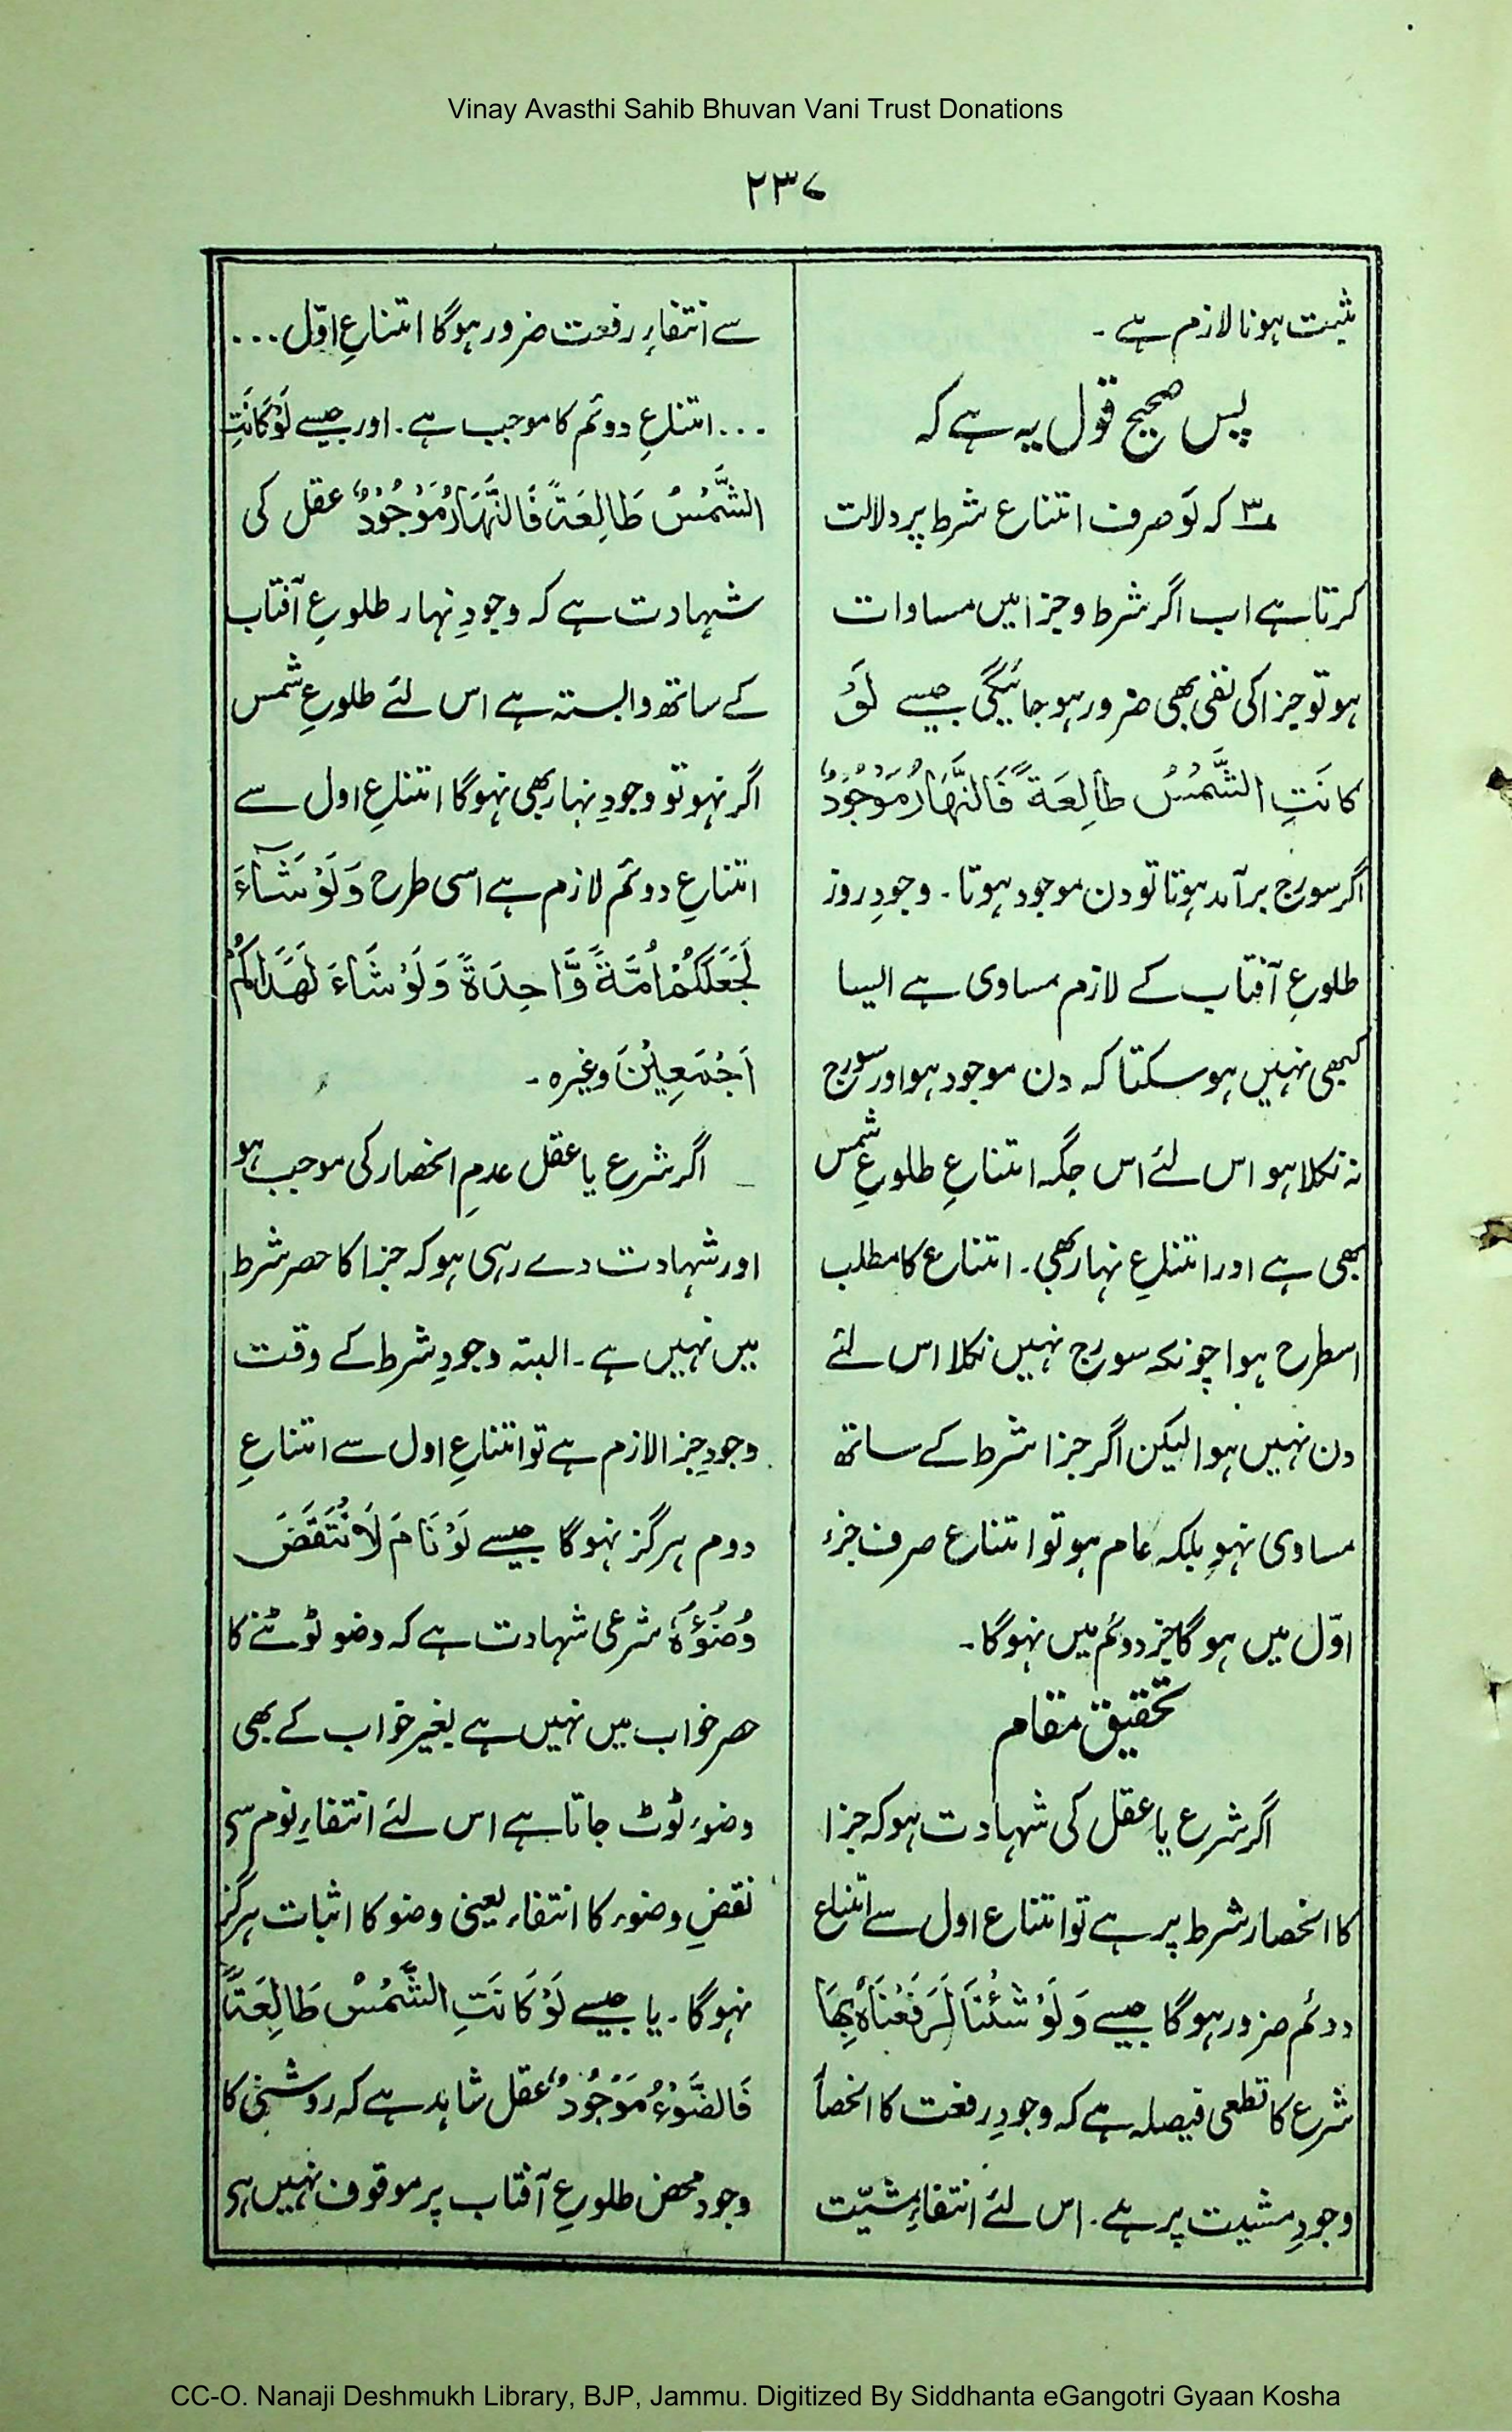 Vinay Avasthi Sahib Bhuvan Vani Trust Donations
۲۳۷
ثبت ہونا لازم ہے ۔
پس صحیح قول یہ ہے کہ
۳؎ کہ لَو صرف امتناع شرط پر دلالت
کرتا ہے اب اگر شرط و جزا میں مساوات
ہو تو جزا کی نفی بھی ضرور ہو جائیگی جیسے لَوْ
کَانَتِ الشَّمْسُ طَالِعَةً فَالنَّهَارُ مَوْجُوْدٌ
اگر سورج برآمد ہوتا تو دن موجود ہوتا ۔ وجودِ روز
طلوعِ آفتاب کے لازم مساوی ہے ایسا
کبھی نہیں ہو سکتا کہ دن موجود ہو اور سورج
نہ نکلا ہو اس لئے اس جگہ امتناعِ طلوعِ شمس
بھی ہے اور امتناعِ نہار بھی ۔ امتناع کا مطلب
اسطرح ہوا چونکہ سورج نہیں نکلا اس لئے
دن نہیں ہوا لیکن اگر جزا شرط کے ساتھ
مساوی نہو بلکہ عام ہو تو امتناع صرف جزء
اوّل میں ہوگا جز دوئم میں نہوگا ۔
تحقیق مقام
اگر شرع یا عقل کی شہادت ہو کہ جزا
کا انحصار شرط پر ہے تو امتناع اول سے امتناع
دوئم ضرور ہوگا جیسے وَلَوْ شِئْنَا لَرَفَعْنَاهُ بِهَا
شرع کا قطعی فیصلہ ہے کہ وجودِ رفعت کا انحصا
وجودِ مشیت پر ہے ۔ اس لئے انتفاءِ مشیّت
سے انتفاءِ رفعت ضرور ہوگا امتناعِ اوّل ...
... امتناعِ دوئم کا موجب ہے ۔ اور جیسے لَوْ کَانَتِ
الشَّمْسُ طَالِعَةً فَالنَّهَارُ مَوْجُوْدٌ عقل کی
شہادت ہے کہ وجودِ نہار طلوعِ آفتاب
کے ساتھ وابستہ ہے اس لئے طلوعِ شمس
اگر نہو تو وجودِ نہار بھی نہوگا امتناعِ اول سے
امتناعِ دوئم لازم ہے اسی طرح وَلَوْ شَآءَ
لَجَعَلَکُمْ اُمَّةً وَّاحِدَةً وَلَوْ شَاءَ لَهَدَاکُمْ
اَجْمَعِیْنَ وغیرہ ۔
اگر شرع یا عقل عدمِ انحصار کی موجب ہو
اور شہادت دے رہی ہو کہ جزا کا حصر شرط
میں نہیں ہے ۔ البتہ وجودِ شرط کے وقت
وجودِ جزا لازم ہے تو امتناعِ اول سے امتناعِ
دوم ہرگز نہوگا جیسے لَوْ نَامَ لَانْتَقَضَ
وُضُوْءُهٗ شرعی شہادت ہے کہ وضو ٹوٹنے کا
حصر خواب میں نہیں ہے بغیر خواب کے بھی
وضوء ٹوٹ جاتا ہے اس لئے انتفاءِ نوم سے
نقضِ وضوء کا انتفاء یعنی وضو کا اثبات ہرگز
نہوگا ۔ یا جیسے لَوْ کَانَتِ الشَّمْسُ طَالِعَةً
فَالضَّوْءُ مَوْجُوْدٌ عقل شاہد ہے کہ روشنی کا
وجود محض طلوعِ آفتاب پر موقوف نہیں ہے
CC-O. Nanaji Deshmukh Library, BJP, Jammu. Digitized By Siddhanta eGangotri Gyaan Kosha